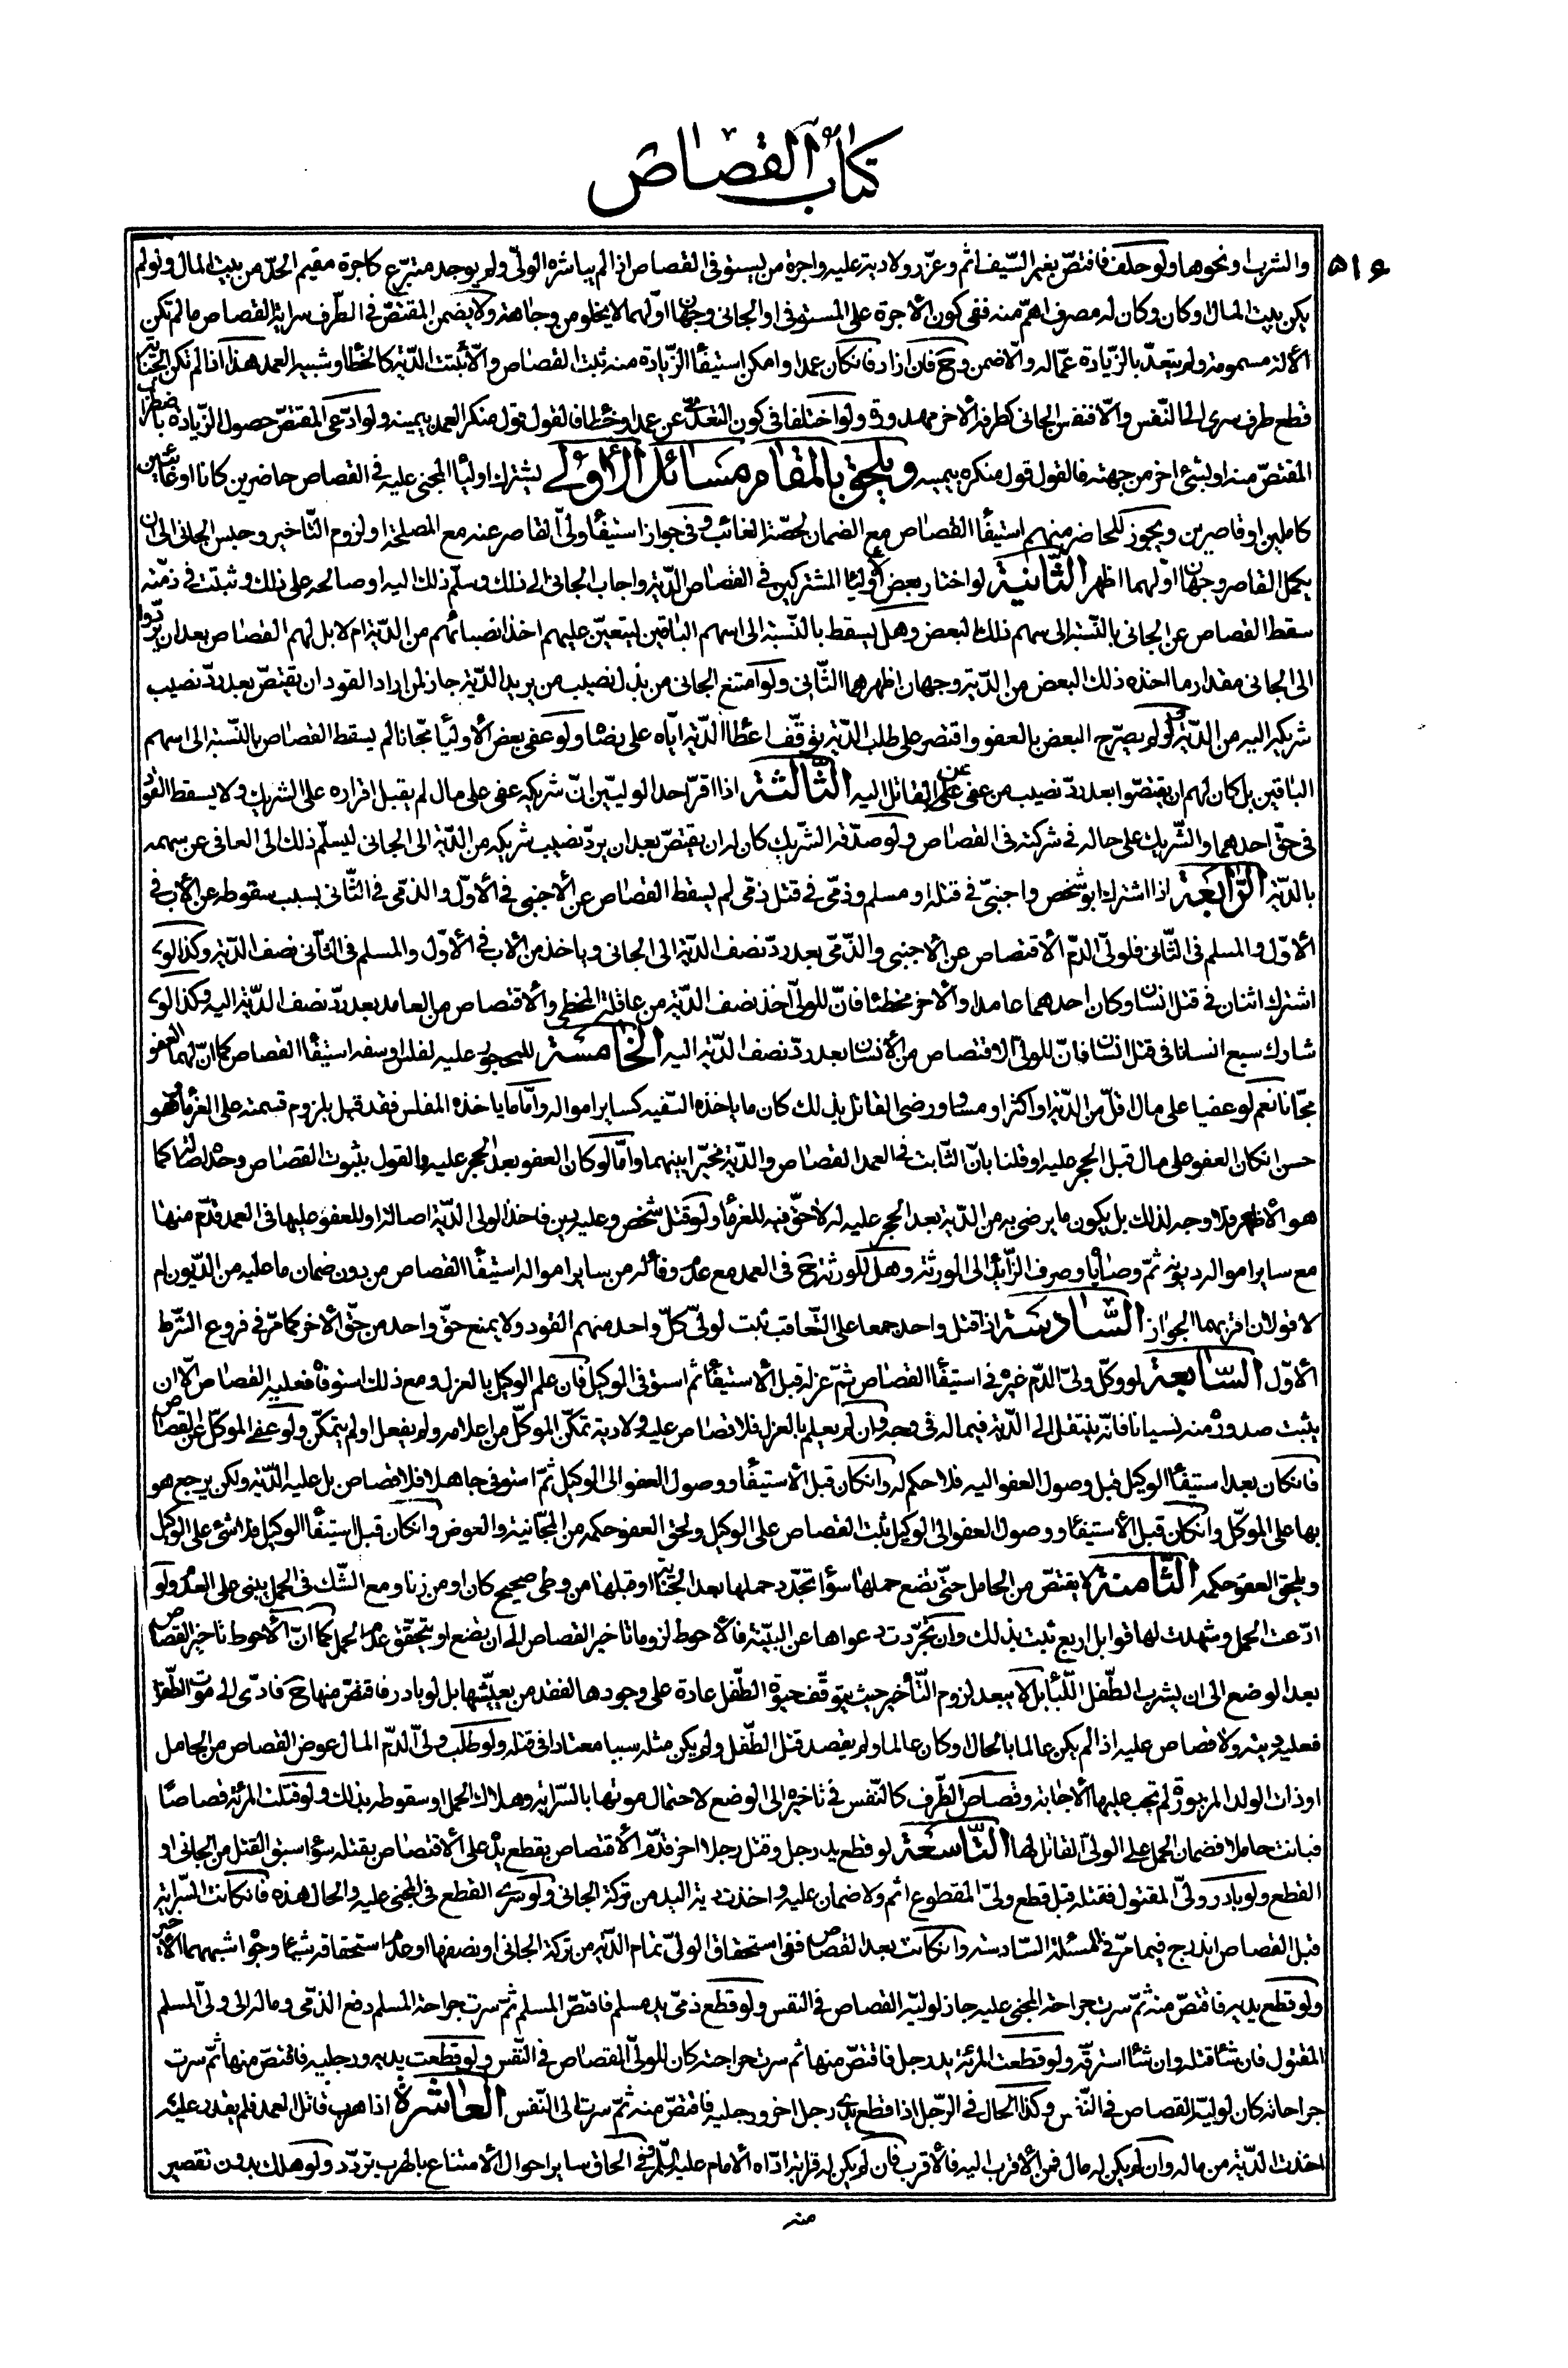 كتاب القصاص
٥١٤
والشرب ونحوها ولو حلف فاقتصّ بغير السّيف اثم وعزّر ولا دية عليه واجرة من يستوفى القصاص اذا لم يباشره الولىّ ولم يوجد متبرّع كاجرة مقيم الحدّ من بيت المال ولو لم
يكن بيت المال او كان وكان له مصرف اهمّ منه ففى كون الأجرة على المستوفى او الجانى وجهان اوّلهما لا يخلو من وجاهة ولا يضمن المقتصّ فى الطّرف سراية القصاص ما لم تكن
الألة مسمومة ولم يتعدّ بالزّيادة عمّا له والّا ضمن وح فان زاد فانكان عمدا وامكن استيفاء الزّيادة منه ثبت القصاص والّا ثبتت الدّية كالخطا وشبيه العمد هذا اذا لم تكن الجناية
قطع طرف سرى الى النّفس والّا فنفس الجانى كطرفه الأخر مهدورة ولو اختلفا فى كون التعدّى عن عمد او خطا فالقول قول منكر العمد بيمينه ولو ادّعى المقتصّ حصول الزّيادة باضطراب
المقتصّ منه او بشئ اخر من جهته فالقول قول منكره بيمينه ويلحق بالمقام مسائل الأولى يشترك اولياء المجنى عليه فى القصاص حاضرين كانا او غائبين
كاملين او قاصرين ويجوز للحاضر منهم استيفاء القصاص مع الضمان لحصّة الغائب وفى جواز استيفاء ولىّ القاصر عنه مع المصلحة او لزوم التّاخير وحبس الجانى الى ان
يكمل القاصر وجهان اوّلهما اظهر الثّانية لو اختار بعض أولياء المشتركين فى القصاص الدّية واجاب الجانى الى ذلك وسلّم ذلك اليه او صالحه على ذلك وثبتت فى ذمّته
سقط القصاص عن الجانى بالنّسبة الى سهم ذلك البعض وهل يسقط بالنّسبة الى اسهم الباقين ليتعيّن عليهم اخذ انصبائهم من الدّية ام لا بل لهم القصاص بعد ان يردّوا
الى الجانى مقدار ما اخذه ذلك البعض من الدّية وجهان اظهرهما الثّانى ولو امتنع الجانى من بذل نصيب من يريد الدّية جاز لمن اراد القود ان يقتصّ بعد ردّ نصيب
شريكه اليه من الدّية ولو لم يصرّح البعض بالعفو واقتصر على طلب الدّية توقّف اعطاء الدّية ايّاه على رضاه ولو عفى بعض الأولياء مجّانا لم يسقط القصاص بالنّسبة الى اسهم
الباقين بل كان لهم ان يقتصّوا بعد ردّ نصيب من عفى عن القاتل اليه الثّالثة اذا اقرّ احد الوليّين انّ شريكه عفى على مال لم يقبل اقراره على الشريك ولا يسقط القود
فى حقّ احدهما والشّريك على حاله فى شركته فى القصاص ولو صدّقه الشّريك كان له ان يقتصّ بعد ان يردّ نصيب شريكه من الدّية الى الجانى ليسلّم ذلك الى العافى عن سهمه
بالدّية الرّابعة اذا اشترك ابو شخص واجنبىّ فى قتله او مسلم وذمّى فى قتل ذمّى لم يسقط القصاص عن الأجنبى فى الأوّل والذمّى فى الثّانى بسبب سقوطه عن الأب فى
الأوّل والمسلم فى الثّانى فلولىّ الدّم الأقتصاص عن الأجنبى والذّمّى بعد ردّ نصف الدّية الى الجانى وياخذ من الأب فى الأوّل والمسلم فى الثّانى نصف الدّية وكذا لو
اشترك اثنان فى قتل انسان وكان احدهما عامدا والأخر مخطئا فانّ للولىّ اخذ نصف الدّية من عاقلة المخطى والأقتصاص من العامد بعد ردّ نصف الدّية اليه وكذا لو
شارك سبع انسانا فى قتل انسان فانّ للولىّ الاقتصاص من الأنسان بعد ردّ نصف الدّية اليه الخامسة للمحجور عليه لفلس او سفه استيفاء القصاص كما انّ لهما العفو
مجّانا نعم لو عفيا على مال اقلّ من الدّية او اكثر او مساو ورضى القاتل بذلك كان ما ياخذه السّفيه كساير امواله وامّا ما ياخذه المفلس فقد قيل بلزوم قسمته على الغرماء وهو
حسن انكان العفو على مال قبل الحجر عليه او قلنا بانّ الثّابت فى العمد القصاص والدّية مخيّرا بينهما وامّا لو كان العفو بعد الحجر عليه والقول بثبوت القصاص وحده اصالة كما
هو الأظهر فلا وجه لذلك بل يكون ما يرضى به من الدّية بعد الحجر عليه له لا حقّ فيه للغرماء ولو قتل شخص وعليه دين فاخذ الولى الدّية اصالة او للعفو عليها فى العمد قدّم منها
مع ساير امواله ديونه ثمّ وصاياه وصرف الزّايد الى الورثة وهل للورثة ح فى العمد مع عدم وفاء له من ساير امواله استيفاء القصاص من دون ضمان ما عليه من الدّيون ام
لا قولان اقربهما الجواز السّادسة اذا قتل واحد جمعا على التّعاقب ثبت لولىّ كلّ واحد منهم القود ولا يمنع حقّ واحد من حقّ الأخر كما مرّ فى فروع الشّرط
الأوّل السّابعة لو وكّل ولىّ الدّم غيره فى استيفاء القصاص ثمّ عزله قبل الأستيفاء ثم استوفى الوكيل فان علم الوكيل بالعزل ومع ذلك استوفاه فعليه القصاص الّا ان
يثبت صدوره منه نسيانا فانّه ينتقل الى الدّية فيما له فى وجه وان لم يعلم بالعزل فلا قصاص عليه ولا دية تمكّن الموكّل من اعلامه ولم يفعل او لم يتمكّن ولو عفى الموكّل عن القصاص
فانكان بعد استيفاء الوكيل قبل وصول العفو اليه فلا حكم له وانكان قبل الأستيفاء ووصول العفو الى الوكيل ثمّ استوفى جاهلا فلا قصاص بل عليه الدّية ولكن يرجع هو
بها على الموكّل وانكان قبل الأستيفاء ووصول العفو الى الوكيل ثبت القصاص على الوكيل ولحق العفو حكمه من المجّانية والعوض وانكان قبل استيفاء الوكيل فلا شئ على الوكيل
ويلحق العفو حكمه الثّامنة لا يقتصّ من الحامل حتّى تضع حملها سواء تجدّد حملها بعد الجناية او قبلها من وطى صحيح كان او من زنا ومع الشّك فى الحمل يبنى على العدم ولو
ادّعت الحمل وشهدت لها قوابل اربع ثبت بذلك وان تجرّدت دعواها عن البيّنة فالأحوط لزوما تاخير القصاص الى ان تضع او يتحقّق عدم الحمل كما انّ الأحوط تاخير القصاص
بعد الوضع الى ان يشرب الطّفل اللّباء بل لا يبعد لزوم التّأخير حيث يتوقّف حيوة الطّفل عادة على وجودها لفقد من يعيّشها بل لو بادر فاقتصّ منها ح فادّى الى موت الطّفل
فعليه ديته ولا قصاص عليه اذا لم يكن عالما بالحال او كان عالما ولم يقصد قتل الطّفل ولم يكن مثله سببا معتادا فى قتله ولو طلب ولىّ الدّم المال عوض القصاص من الحامل
او ذات الولد المزبورة لم تجب عليها الأجابة وقصاص الطّرف كالنّفس فى تاخيره الى الوضع لاحتمال موتها بالسّراية وهلاك الحمل او سقوطه بذلك ولو قتلت المرئة قصاصا
فبانت حاملا فضمان الحمل على الولىّ القاتل لها التّاسعة لو قطع يد رجل وقتل رجلا اخر قدّم الأقتصاص بقطع يده على الأقتصاص بقتله سواء سبق القتل من الجانى او
القطع ولو بادر ولىّ المقتول فقتله قبل قطع ولىّ المقطوع اثم ولا ضمان عليه واخذت دية اليد من تركة الجانى ولو سرى القطع فى المجنى عليه والحال هذه فانكانت السّراية
قبل القصاص اندرج فيما مرّ فى المسئلة السّادسة وانكانت بعد القصاص ففى استحقاق الولىّ تمام الدّية من تركة الجانى او نصفها او عدم استحقاقه شيئا وجوه اشبهها الأخير
ولو قطع يديه فاقتصّ منه ثمّ سرت جراحة المجنى عليه جاز لوليّه القصاص فى النفس ولو قطع ذمّى يد مسلم فاقتصّ المسلم ثمّ سرت جراحة المسلم دفع الذمّى وماله الى ولىّ المسلم
المقتول فان شاء قتله وان شاء استرقّه ولو قطعت المرئة يد رجل فاقتصّ منها ثم سرت جراحته كان للولىّ القصاص فى النّفس ولو قطعت يديه ورجليه فاقتصّ منها ثمّ سرت
جراحاته كان لوليّه القصاص فى النّفس وكذا الحال فى الرّجل اذا قطع يدى رجل اخر ورجليه فاقتصّ منه ثمّ سرت الى النّفس العاشرة اذا هرب قاتل العمد فلم يقدر عليه
اخذت الدّية من ماله وان لم يكن له مال فمن الأقرب اليه فالأقرب فان لم يكن له قرابة ادّاه الأمام عليه السّلم وفى الحاق ساير احوال الأمتناع بالهرب تردّد ولو هلك بدون تقصير
منه